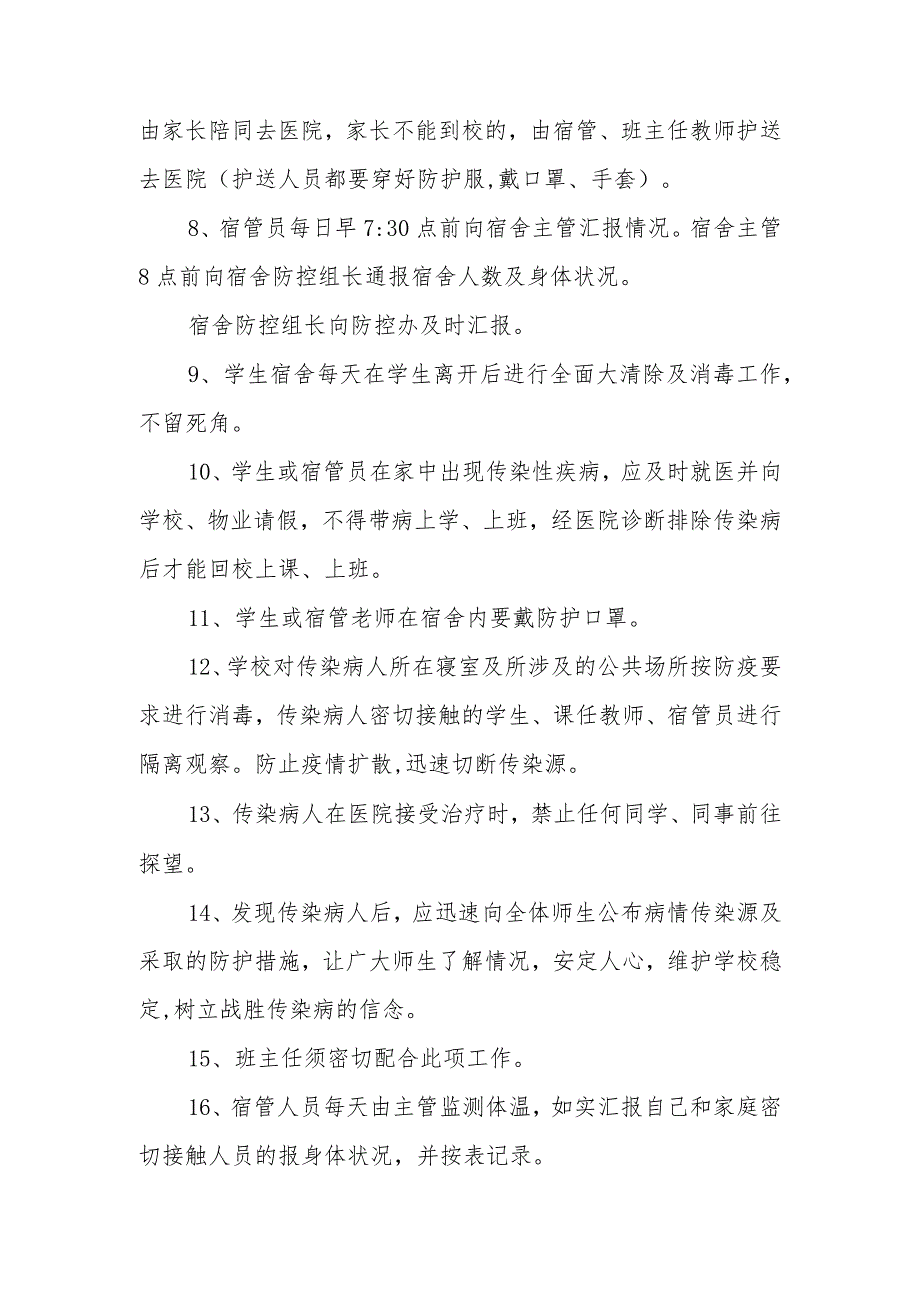 由家长陪同去医院，家长不能到校的，由宿管、班主任教师护送
去医院（护送人员都要穿好防护服,戴口罩、手套）。
8、宿管员每日早7:30点前向宿舍主管汇报情况。宿舍主管
8点前向宿舍防控组长通报宿舍人数及身体状况。
宿舍防控组长向防控办及时汇报。
9、学生宿舍每天在学生离开后进行全面大清除及消毒工作，
不留死角。
10、学生或宿管员在家中出现传染性疾病，应及时就医并向
学校、物业请假，不得带病上学、上班，经医院诊断排除传染病
后才能回校上课、上班。
11、学生或宿管老师在宿舍内要戴防护口罩。
12、学校对传染病人所在寝室及所涉及的公共场所按防疫要
求进行消毒，传染病人密切接触的学生、课任教师、宿管员进行
隔离观察。防止疫情扩散,迅速切断传染源。
13、传染病人在医院接受治疗时，禁止任何同学、同事前往
探望。
14、发现传染病人后，应迅速向全体师生公布病情传染源及
采取的防护措施，让广大师生了解情况，安定人心，维护学校稳
定,树立战胜传染病的信念。
15、班主任须密切配合此项工作。
16、宿管人员每天由主管监测体温，如实汇报自己和家庭密
切接触人员的报身体状况，并按表记录。